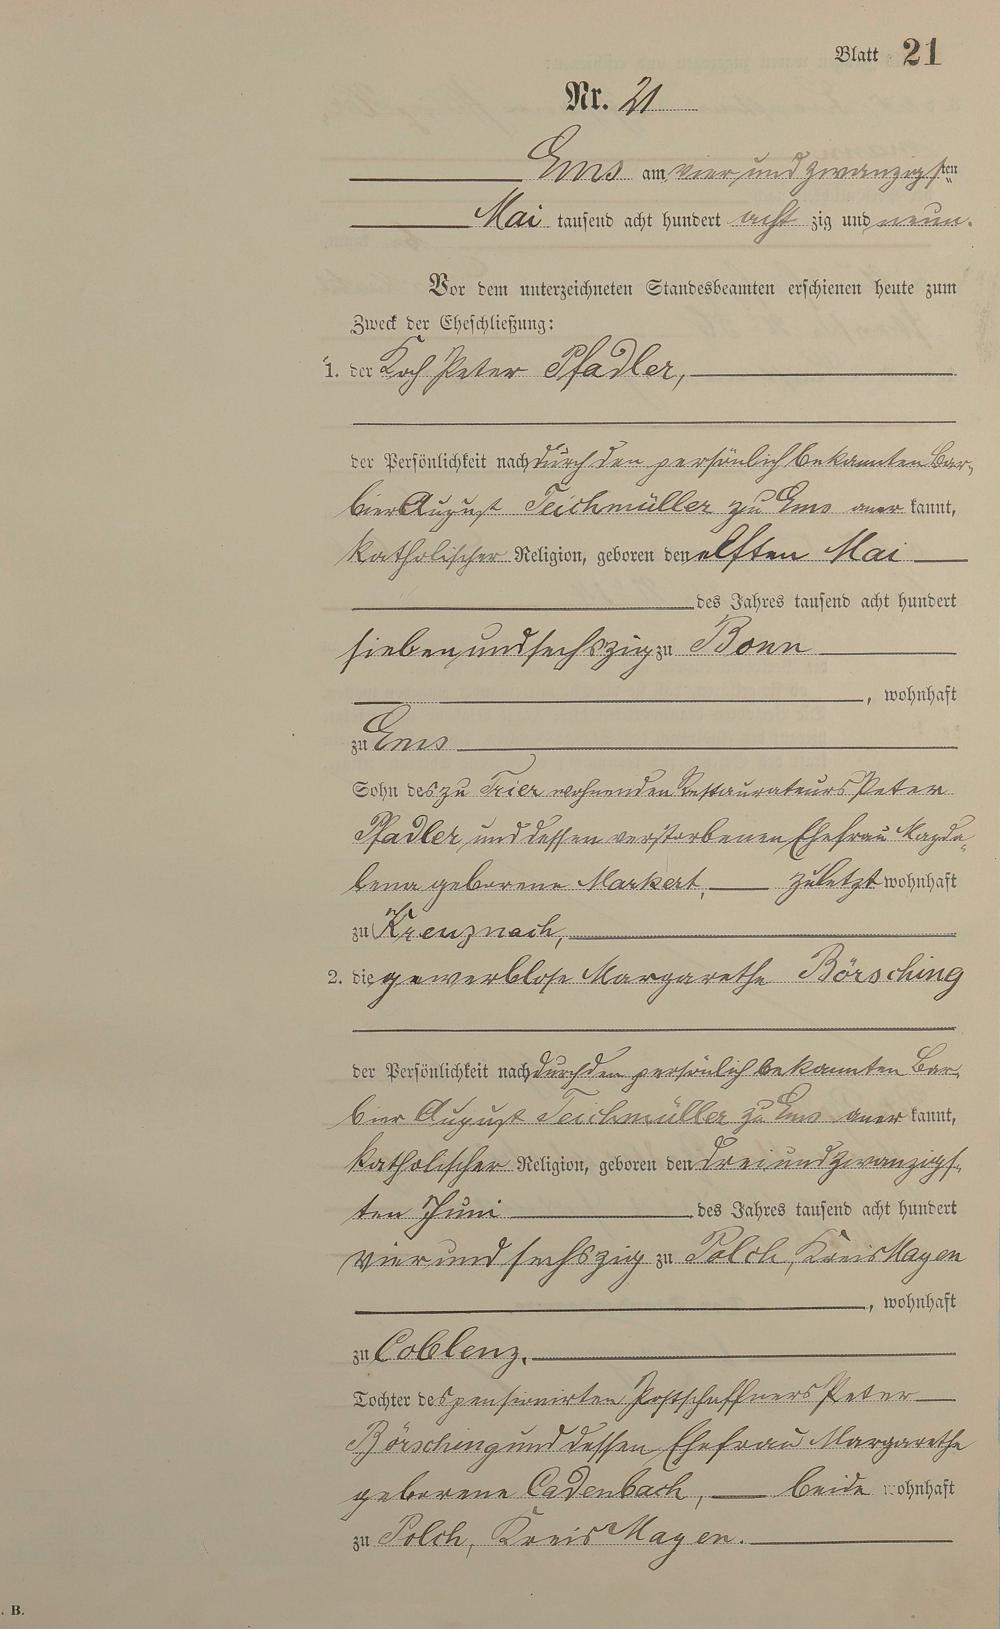 Blatt 21
Nr. 21
Ems am vier und zwanzigsten
Mai tausend acht hundert acht zig und neun.
Vor dem unterzeichneten Standesbeamten erschienen heute zum
Zweck der Eheschließung:
1. der Koch Peter Pfadler,
der Persönlichkeit nach durch den persönlich bekannten Bar-
bier August Teichmüller zu Ems aner kannt,
katholischer Religion, geboren den elften Mai
des Jahres tausend acht hundert
sieben und sechszig zu Bonn
, wohnhaft
zu Ems
Sohn des zu Trier wohnenden Restaurateurs Peter
Pfadler und dessen verstorbenen Ehefrau Magda-
lena geborene Markert, zuletzt wohnhaft
zu Kreuznach,
2. die gewerblose Margarethe Börsching
der Persönlichkeit nach durch den persönlich bekannten Bar-
bier August Teichmüller zu Ems aner kannt,
katholischer Religion, geboren den drei und zwanzigs-
ten Juni des Jahres tausend acht hundert
vier und sechszig zu Polch, Kreis Mayen
, wohnhaft
zu Coblenz,
Tochter des pensionirten Postschaffners Peter
Börsching und dessen Ehefrau Margarethe
geborene Cadenbach, beide wohnhaft
zu Polch, Kreis Mayen.
. B.